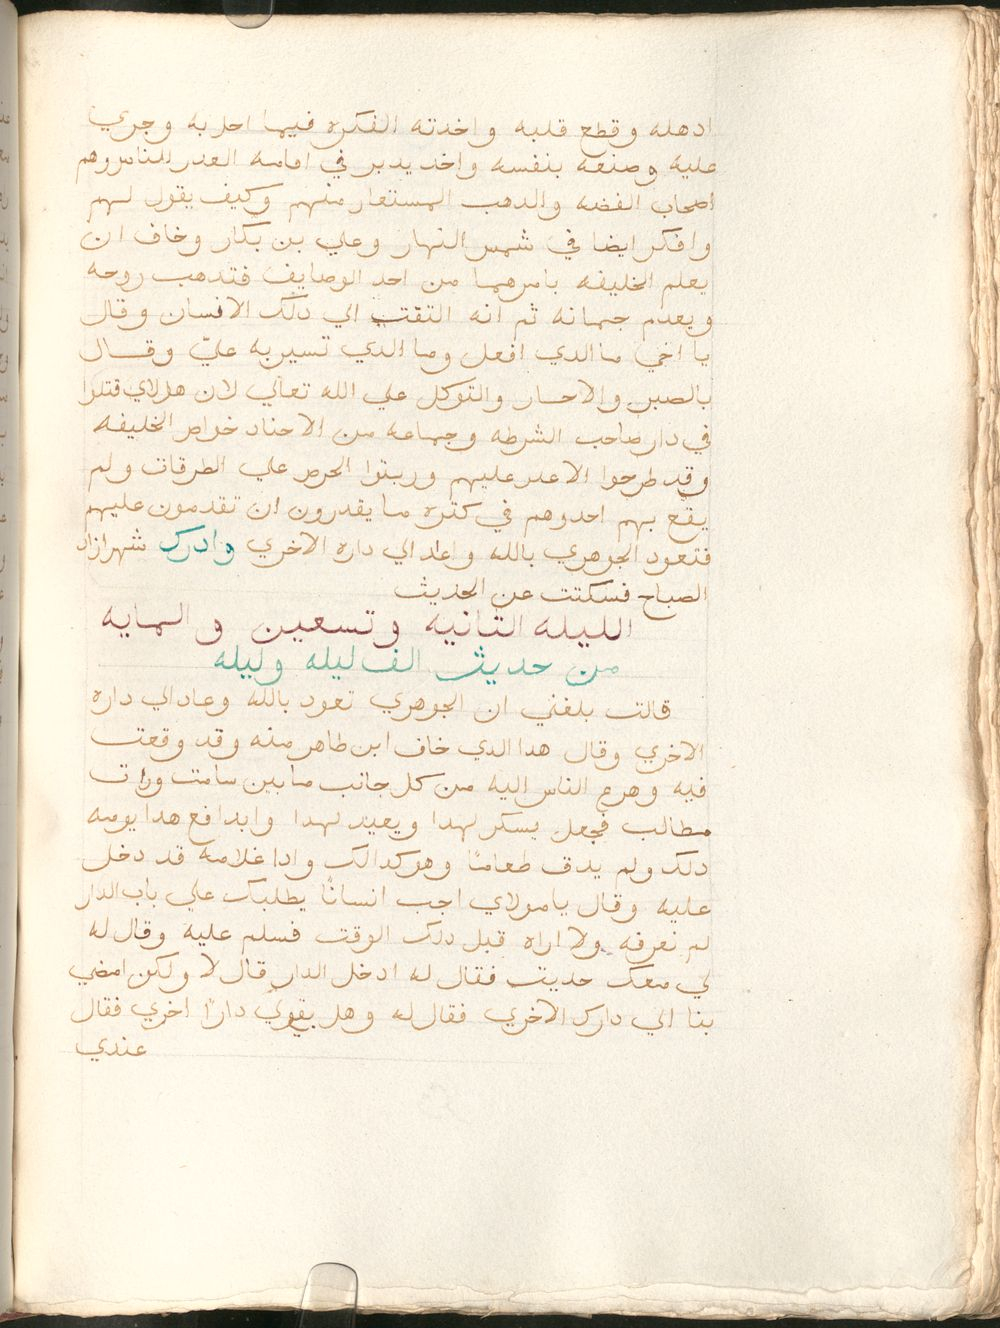 ادهله وقطع قلبه واخدته الفكره فيما احل به وجري
عليه وصنعه بنفسه واخد يدبر في اقامه العدر للناس وهم
اصحاب الفضه والدهب المستعار منهم وكيف يقول لهم
وافكر ايضا في شمس النهار وعلي بن بكار وخاف ان
يعلم الخليفه بامرهما من احد الوصايف فتدهب روحه
ويعدم جمانه ثم انه التفت الي دلك الانسان وقال
يا اخي ما الدي افعل وما الدي تسير به عليّ وقال
بالصبر والاحسار والتوكل علي الله تعالي لان هولاي قتلوا
في دار صاحب الشرطه وجماعه من الاحناد خواص الخليفه
وقد طرحوا عليهم وربتوا الحرص علي الطرقات ولم
يقع بهم احدوهم في كتره ما يقدرون ان تقدمون عليهم
فتعود الجوهري بالله واعاد الي داره الاخري وادرك شهرازاد
الصباح فسكتت عن الحديث
الليله التانيه وتسعين والمايه
من حديث الف ليله وليله
قالت بلغني ان الجوهري تعود بالله وعاد الي داره
الاخري وقال هدا الدي خاف ابن طاهر منه وقد وقعت
فيه وهرع الناس اليه من كل جانب ما بين سامت ورات
مطالب فجعل يسكر لهدا ويعيد لهدا وابدافع هدا يومه
دلك ولم يدق طعامًا وهو كدالك وادا غلامه قد دخل
عليه وقال يا مولاي اجب انسانًا يطلبك علي باب الدار
لم نعرفه ولا اراه قبل دلك الوقت فسلم عليه وقال له
لي معك حديت فقال له ادخل الدار قال لا ولكن امضي
بنا الي دارك الاخري فقال له وهل بقوي دارًا اخري فقال
عندي